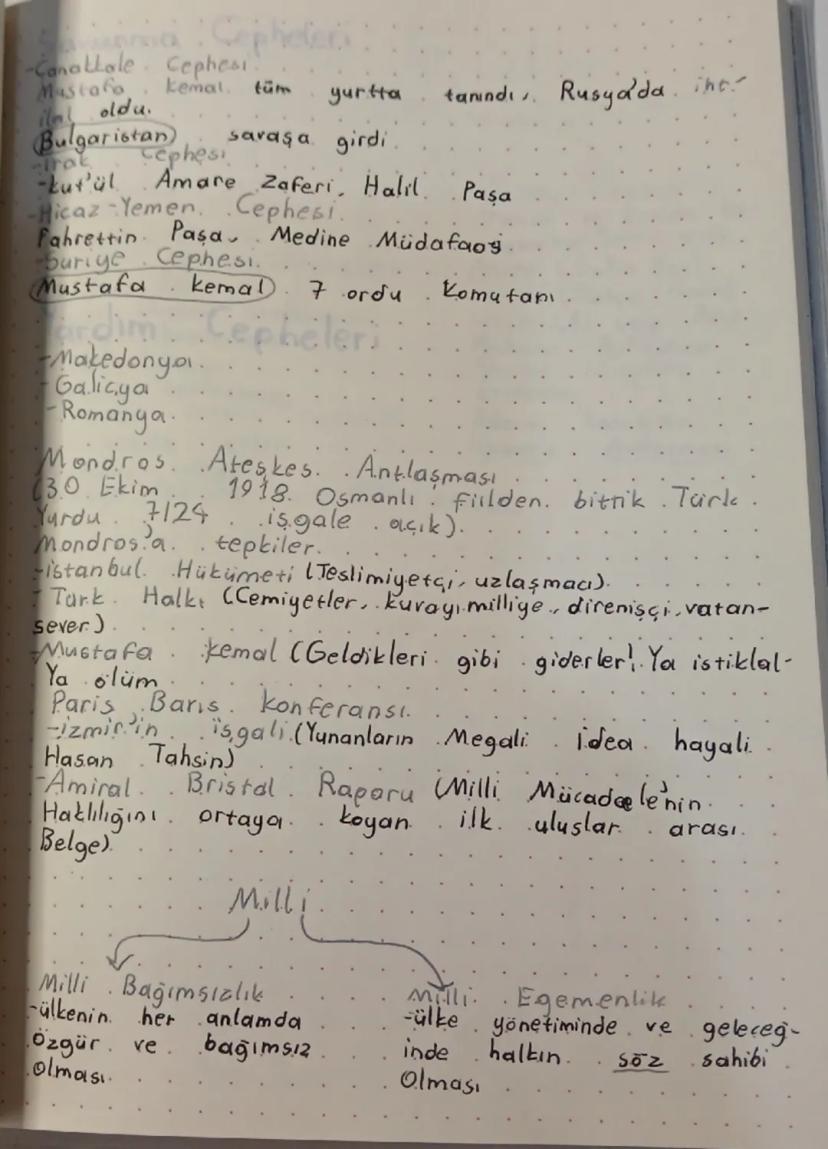 Savunma Cepheleri
-Çanakkale Cephesi
Mustafa kemal tüm yurtta tanındı, Rusya'da iht-
ilal oldu.
Bulgaristan savaşa girdi
-Irak Cephesi
-kut'ül Amare Zaferi, Halil Paşa
-Hicaz-Yemen Cephesi
Fahrettin Paşa, Medine Müdafaası
-Suriye Cephesi
Mustafa kemal 7 ordu Komutanı
Yardım Cepheleri
-Makedonya
-Galiçya
-Romanya
Mondros Ateşkes Antlaşması
(30 Ekim 1918 Osmanlı fiilden bittik Türk
Yurdu 7/24 işgale açık).
Mondros'a tepkiler
-istanbul Hükümeti (Teslimiyetçi, uzlaşmacı)
- Türk Halkı (Cemiyetler, kuvayımilliye, direnişçi, vatan-
sever)
-Mustafa kemal (Geldikleri gibi giderler! Ya istiklal-
Ya ölüm
Paris Barış konferansı
-izmir'in işgali (Yunanların Megali idea hayali
Hasan Tahsin)
-Amiral Bristal Raporu (Milli Mücadele'nin
Haklılığını ortaya koyan ilk uluslar arası
Belge)
Milli
Milli Bağımsızlık
-ülkenin her anlamda
özgür ve bağımsız
olması
Milli Egemenlik
-ülke yönetiminde ve geleceğ-
inde halkın söz sahibi
Olması